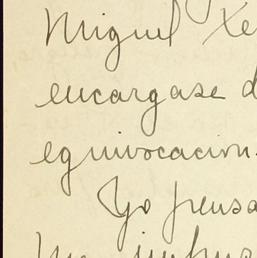 Miguel Xe
encargase d
equivocacion.
Yo pensa